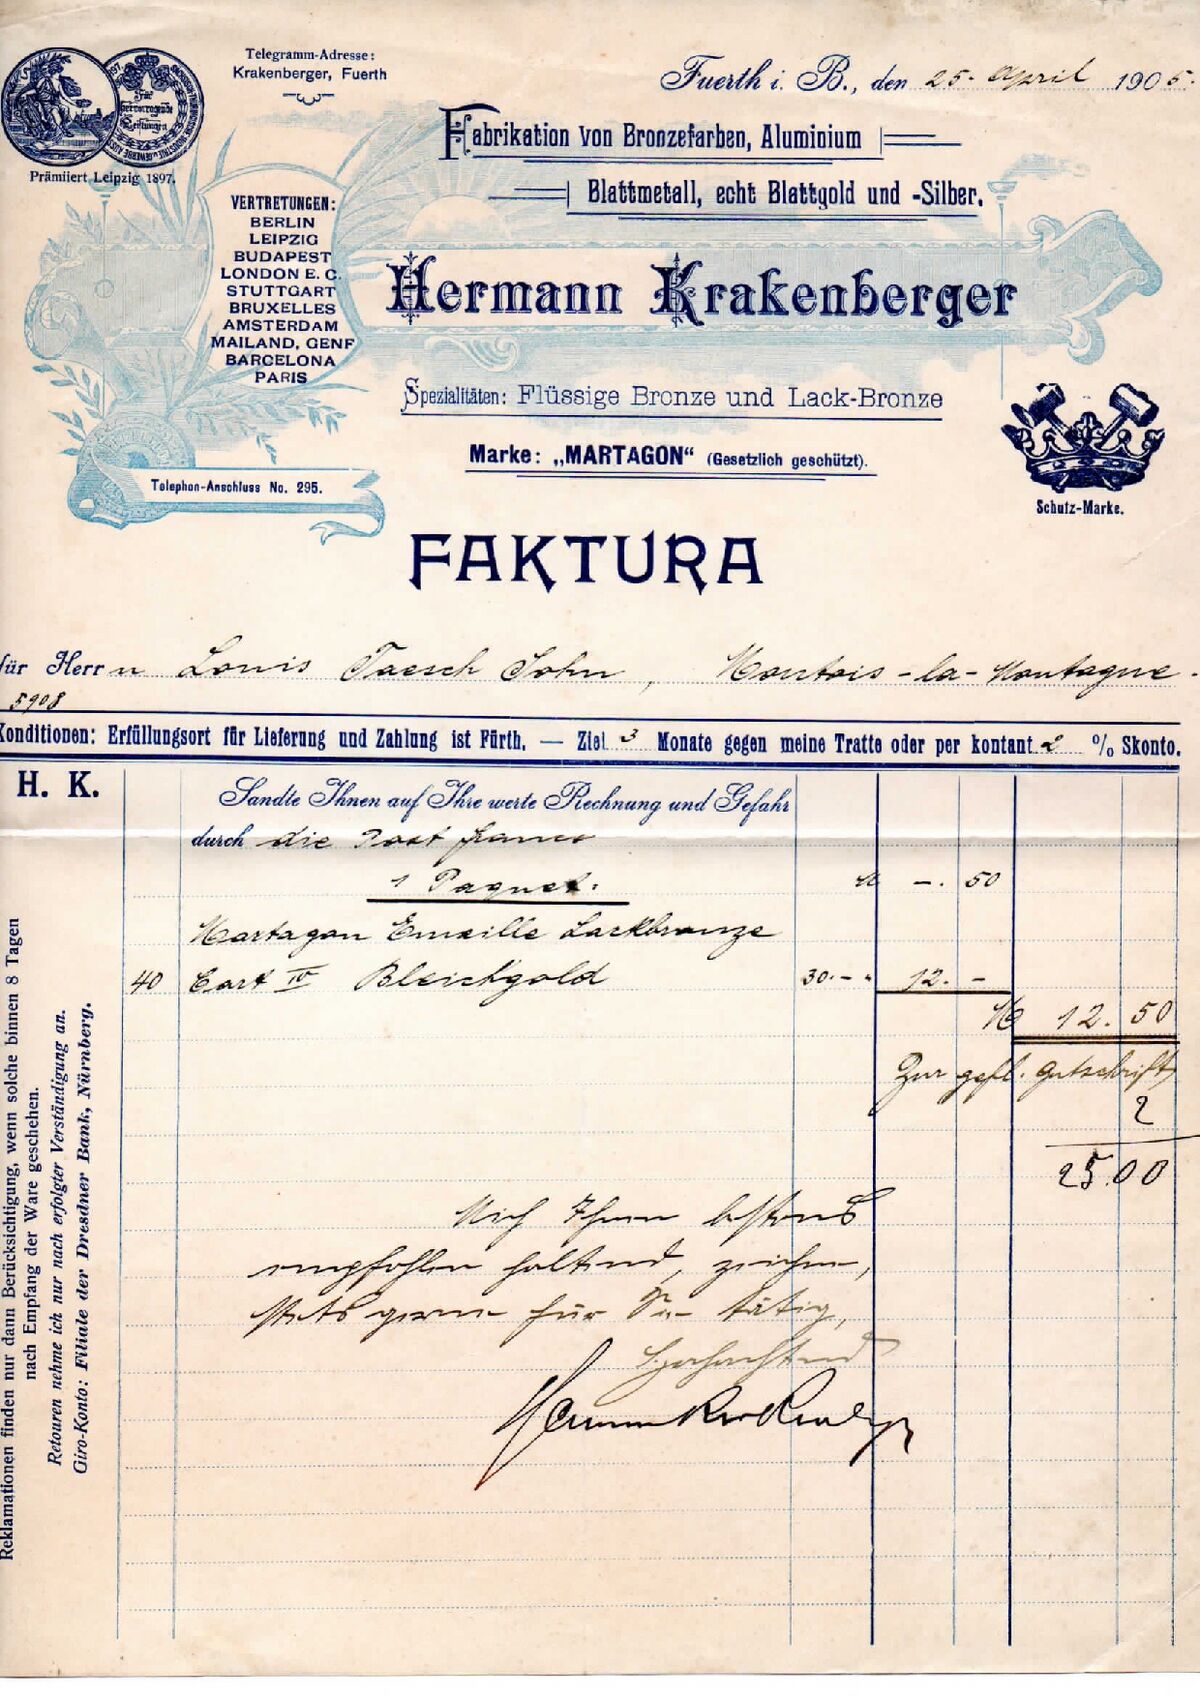 Telegramm-Adresse:
Krakenberger, Fuerth
Fuerth i. B., den 25. April 1905.
Für
hervorragende
Leistungen
Prämiiert Leipzig 1897.
Fabrikation von Bronzefarben, Aluminium
Blattmetall, echt Blattgold und -Silber.
VERTRETUNGEN:
BERLIN
LEIPZIG
BUDAPEST
LONDON E. C.
STUTTGART
BRUXELLES
AMSTERDAM
MAILAND, GENF
BARCELONA
PARIS
Hermann Krakenberger
Spezialitäten: Flüssige Bronze und Lack-Bronze
Marke: „MARTAGON“ (Gesetzlich geschützt).
Telephon-Anschluss No. 295.
Schutz-Marke.
FAKTURA
für Herrn Louis Taesch John, Montois-la-Montagne.
5908
Konditionen: Erfüllungsort für Lieferung und Zahlung ist Fürth. — Ziel 3 Monate gegen meine Tratte oder per kontant 2 % Skonto.
H. K.
Sandte Ihnen auf Ihre werte Rechnung und Gefahr
durch die Post franco
1 Paquet. M -. 50
Martagon Emaille Lackbronze
40 Cart IV Bleichgold 30.- " 12. -
M 12. 50
Zur gefl. Gutschrift
2
25.00
Mich Ihnen bestens
empfohlen haltend, zeichne,
stets gerne für Sie tätig,
Hochachtend
Hermann Krakenberger
Reklamationen finden nur dann Berücksichtigung, wenn solche binnen 8 Tagen
nach Empfang der Ware geschehen.
Retouren nehme ich nur nach erfolgter Verständigung an.
Giro-Konto: Filiale der Dresdner Bank, Nürnberg.